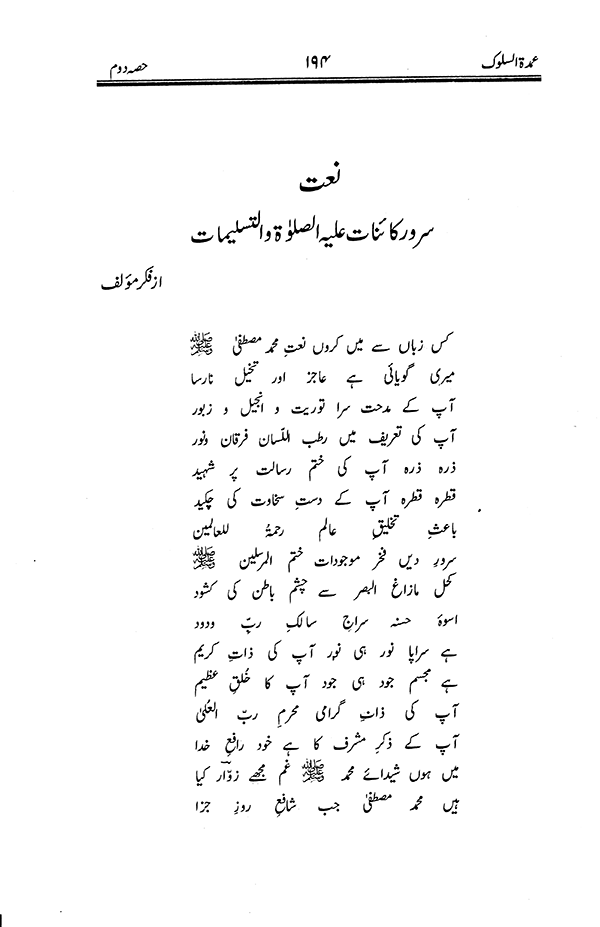 عمدۃ السلوک ۱۹۴ حصہ دوم
نعت
سرور کائنات علیہ الصلوٰۃ والتسلیمات
از فکر مؤلف
کس زباں سے میں کروں نعتِ محمد مصطفیٰ ﷺ
میری گویائی ہے عاجز اور تخیل نارسا
آپ کے مدحت سرا توریت و انجیل و زبور
آپ کی تعریف میں رطب اللّسان فرقان ونور
ذرہ ذرہ آپ کی ختم رسالت پر شہید
قطرہ قطرہ آپ کے دستِ سخاوت کی چکید
باعثِ تخلیقِ عالم رحمۃٌ للعالمین
سرورِ دیں فخرِ موجودات ختم المرسلین ﷺ
کحل مازاغ البصر سے چشم باطن کی کشود
اسوۂ حسنہ سراجِ سالکِ ربِّ ودود
ہے سراپا نور ہی نور آپ کی ذاتِ کریم
ہے مجسم جود ہی جود آپ کا خُلقِ عظیم
آپ کی ذاتِ گرامی محرمِ ربّ العُلیٰ
آپ کے ذکرِ مشرف کا ہے خود رافع خدا
میں ہوں شیدائے محمد ﷺ غم مجھے زوّار کیا
ہیں محمد مصطفیٰ جب شافعِ روزِ جزا